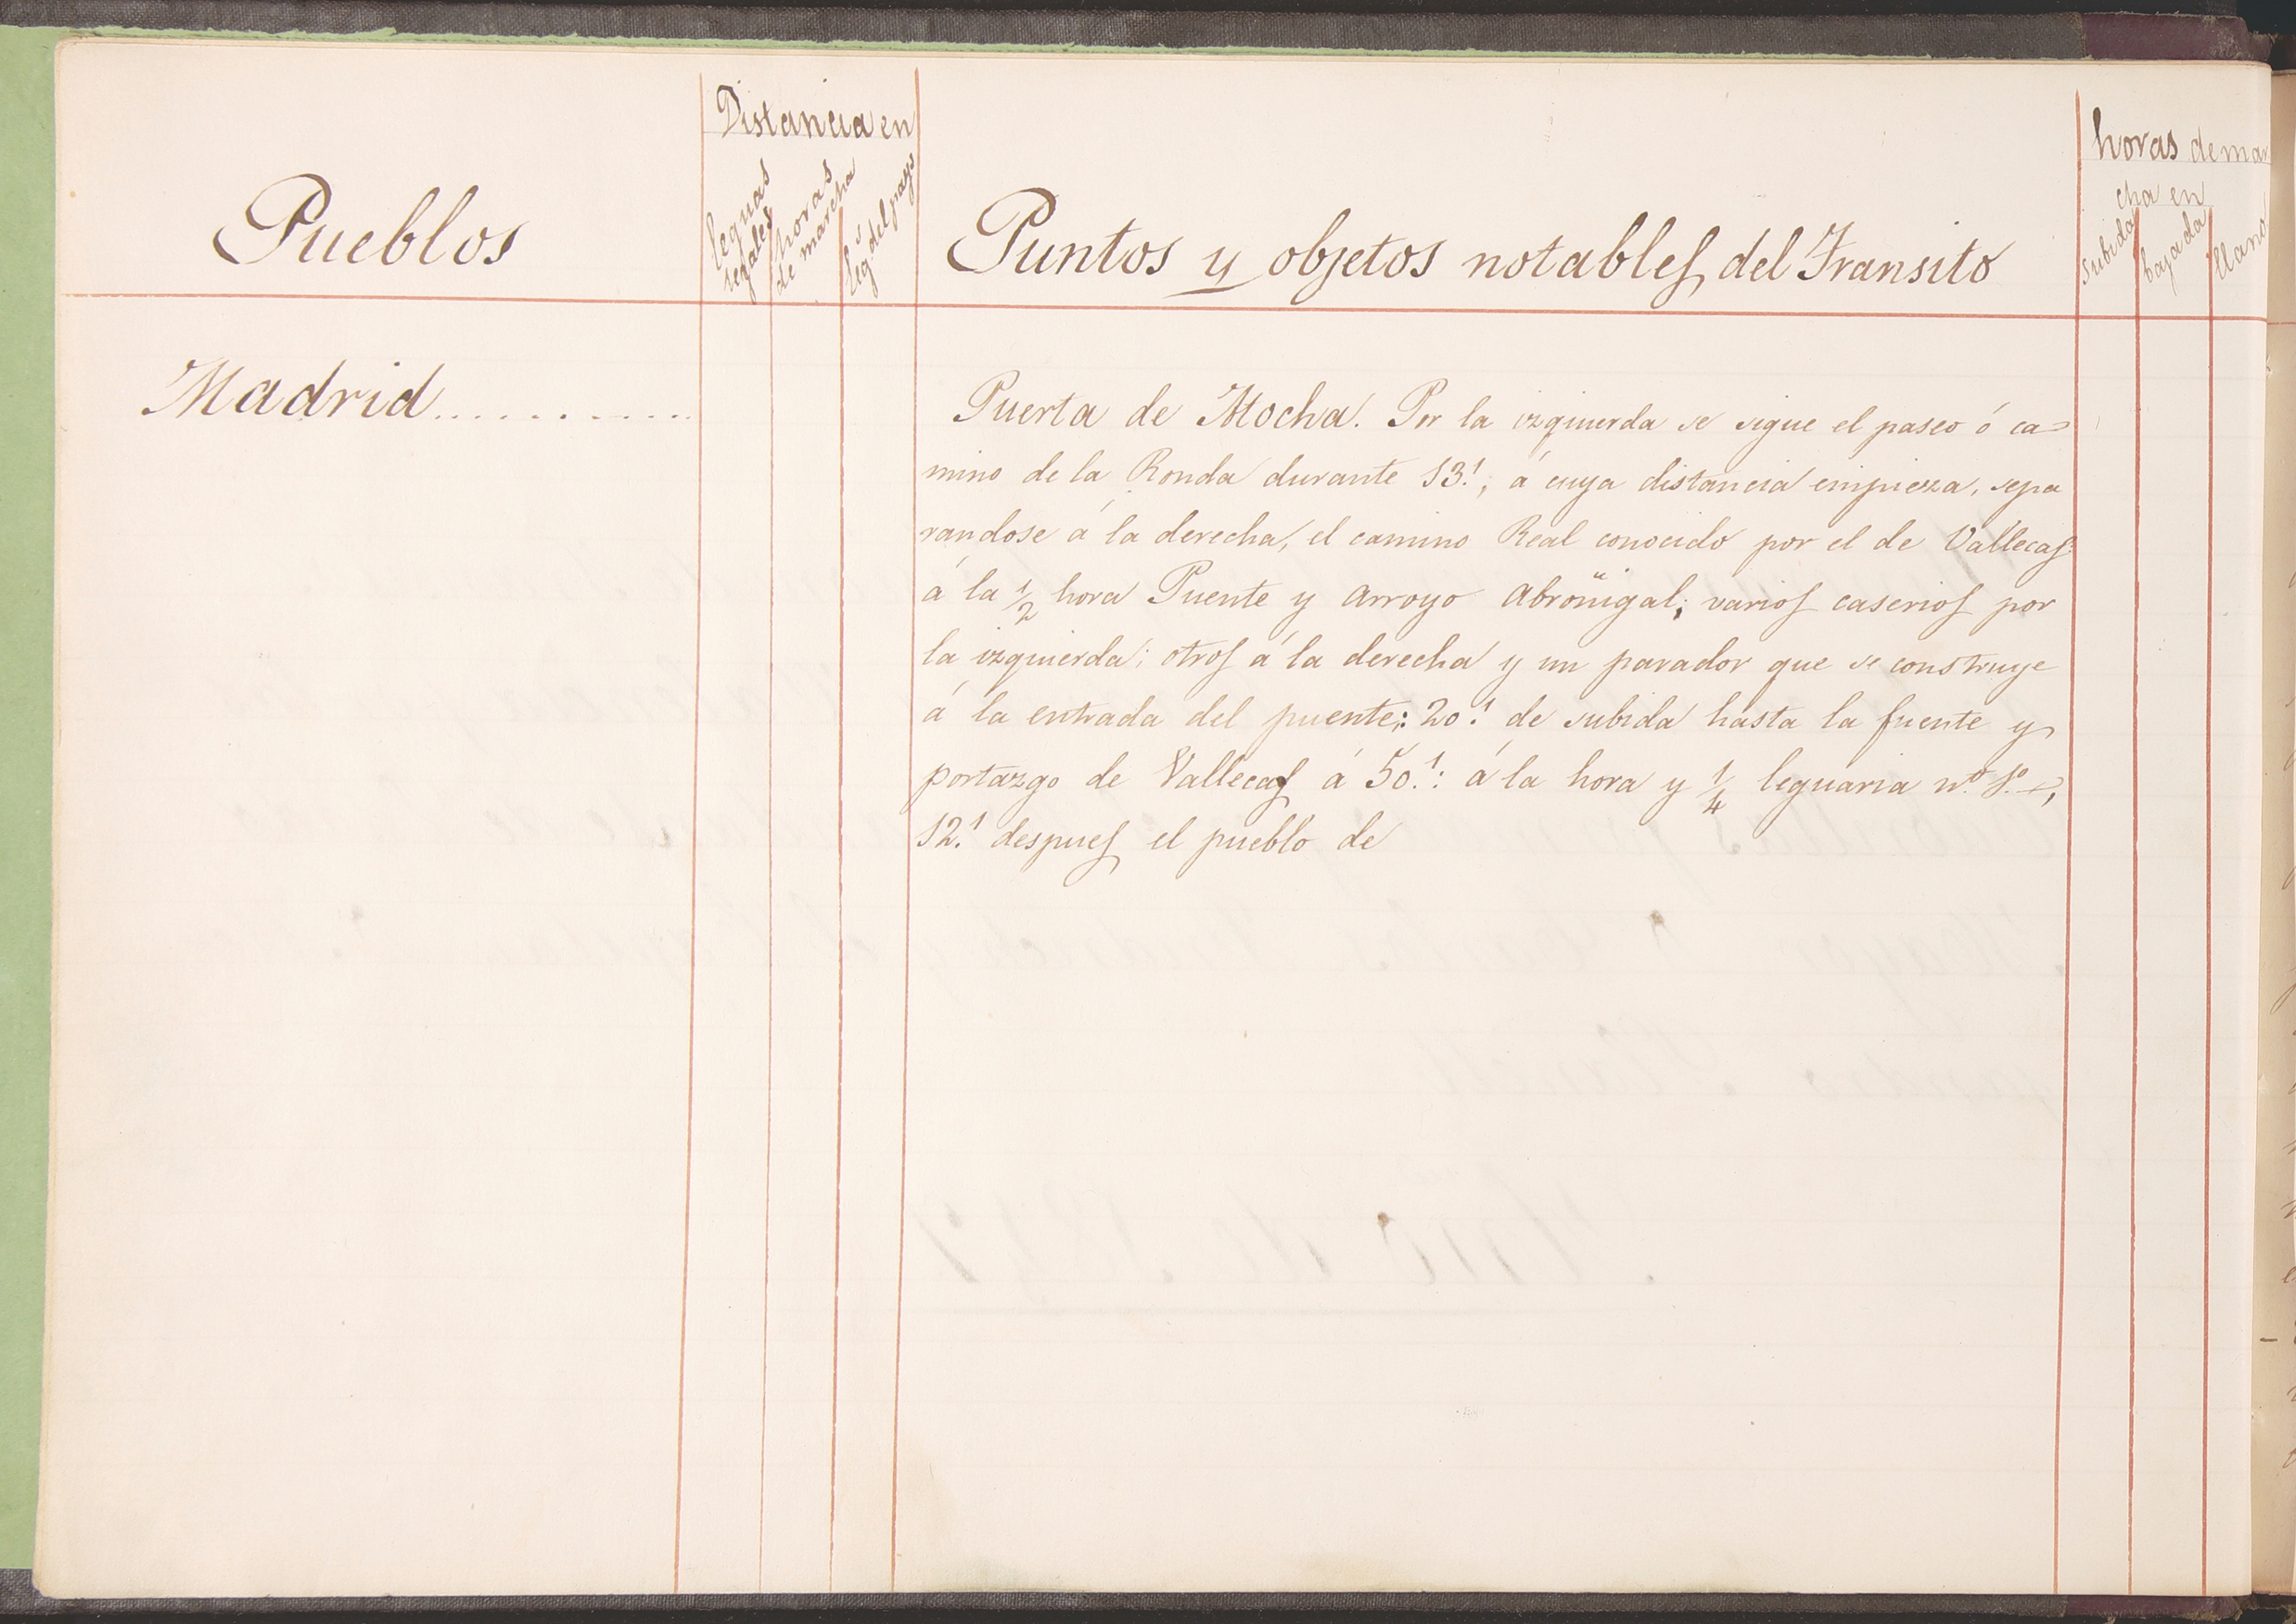 Pueblos
Distancia en
leguas legales
horas de marcha
leg.s del pays
Puntos y objetos notables del Transito
horas de mar
cha en
subida
bajada
llano
Madrid...........
Puerta de Atocha. Por la izquierda se sigue el paseo ó ca=
mino de la Ronda durante 13.', á cuya distancia empieza, sepa
randose á la derecha, el camino Real conocido por el de Vallecas:
á la 1/2 hora Puente y arroyo abroñigal; varios caserios por
la izquierda; otros á la derecha y un parador que se construye
á la entrada del puente: 20.' de subida hasta la fuente y
portazgo de Vallecas á 50.': á la hora y 1/4 leguaria n.º 1.º,
12.' despues el pueblo de